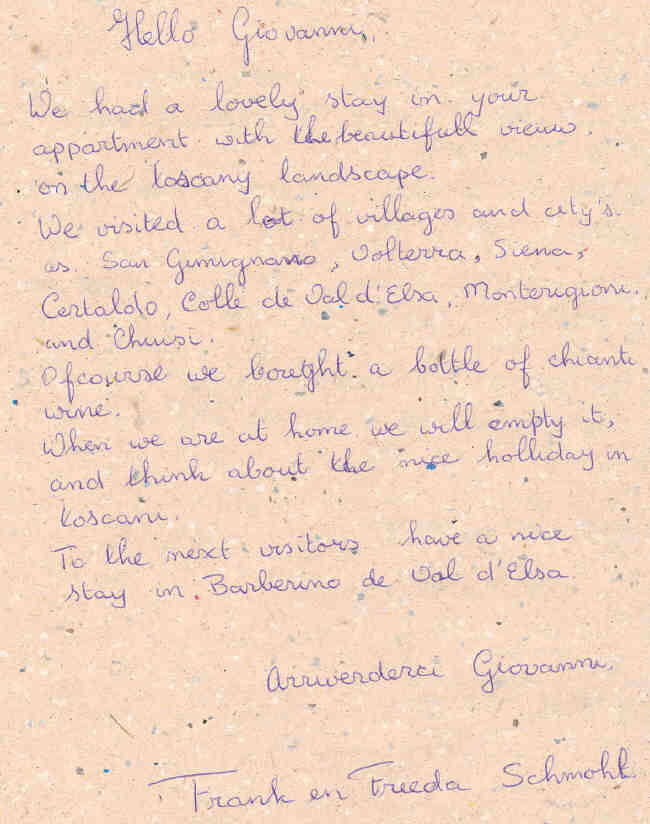 Hello Giovanni,
We had a lovely stay in your
appartment with the beautifull view
on the toscany landscape.
We visited a lot of villages and city's
as San Gimignano, Volterra, Siena,
Certaldo, Colle de Val d'Elsa, Monterigioni
and Chiusi.
Ofcourse we bought a bottle of chianti
wine.
When we are at home we will empty it,
and think about the nice holliday in
toscani.
To the next visitors have a nice
stay in Barberino de Val d'Elsa
Arriverderci Giovanni.
Frank en Freeda Schmohl